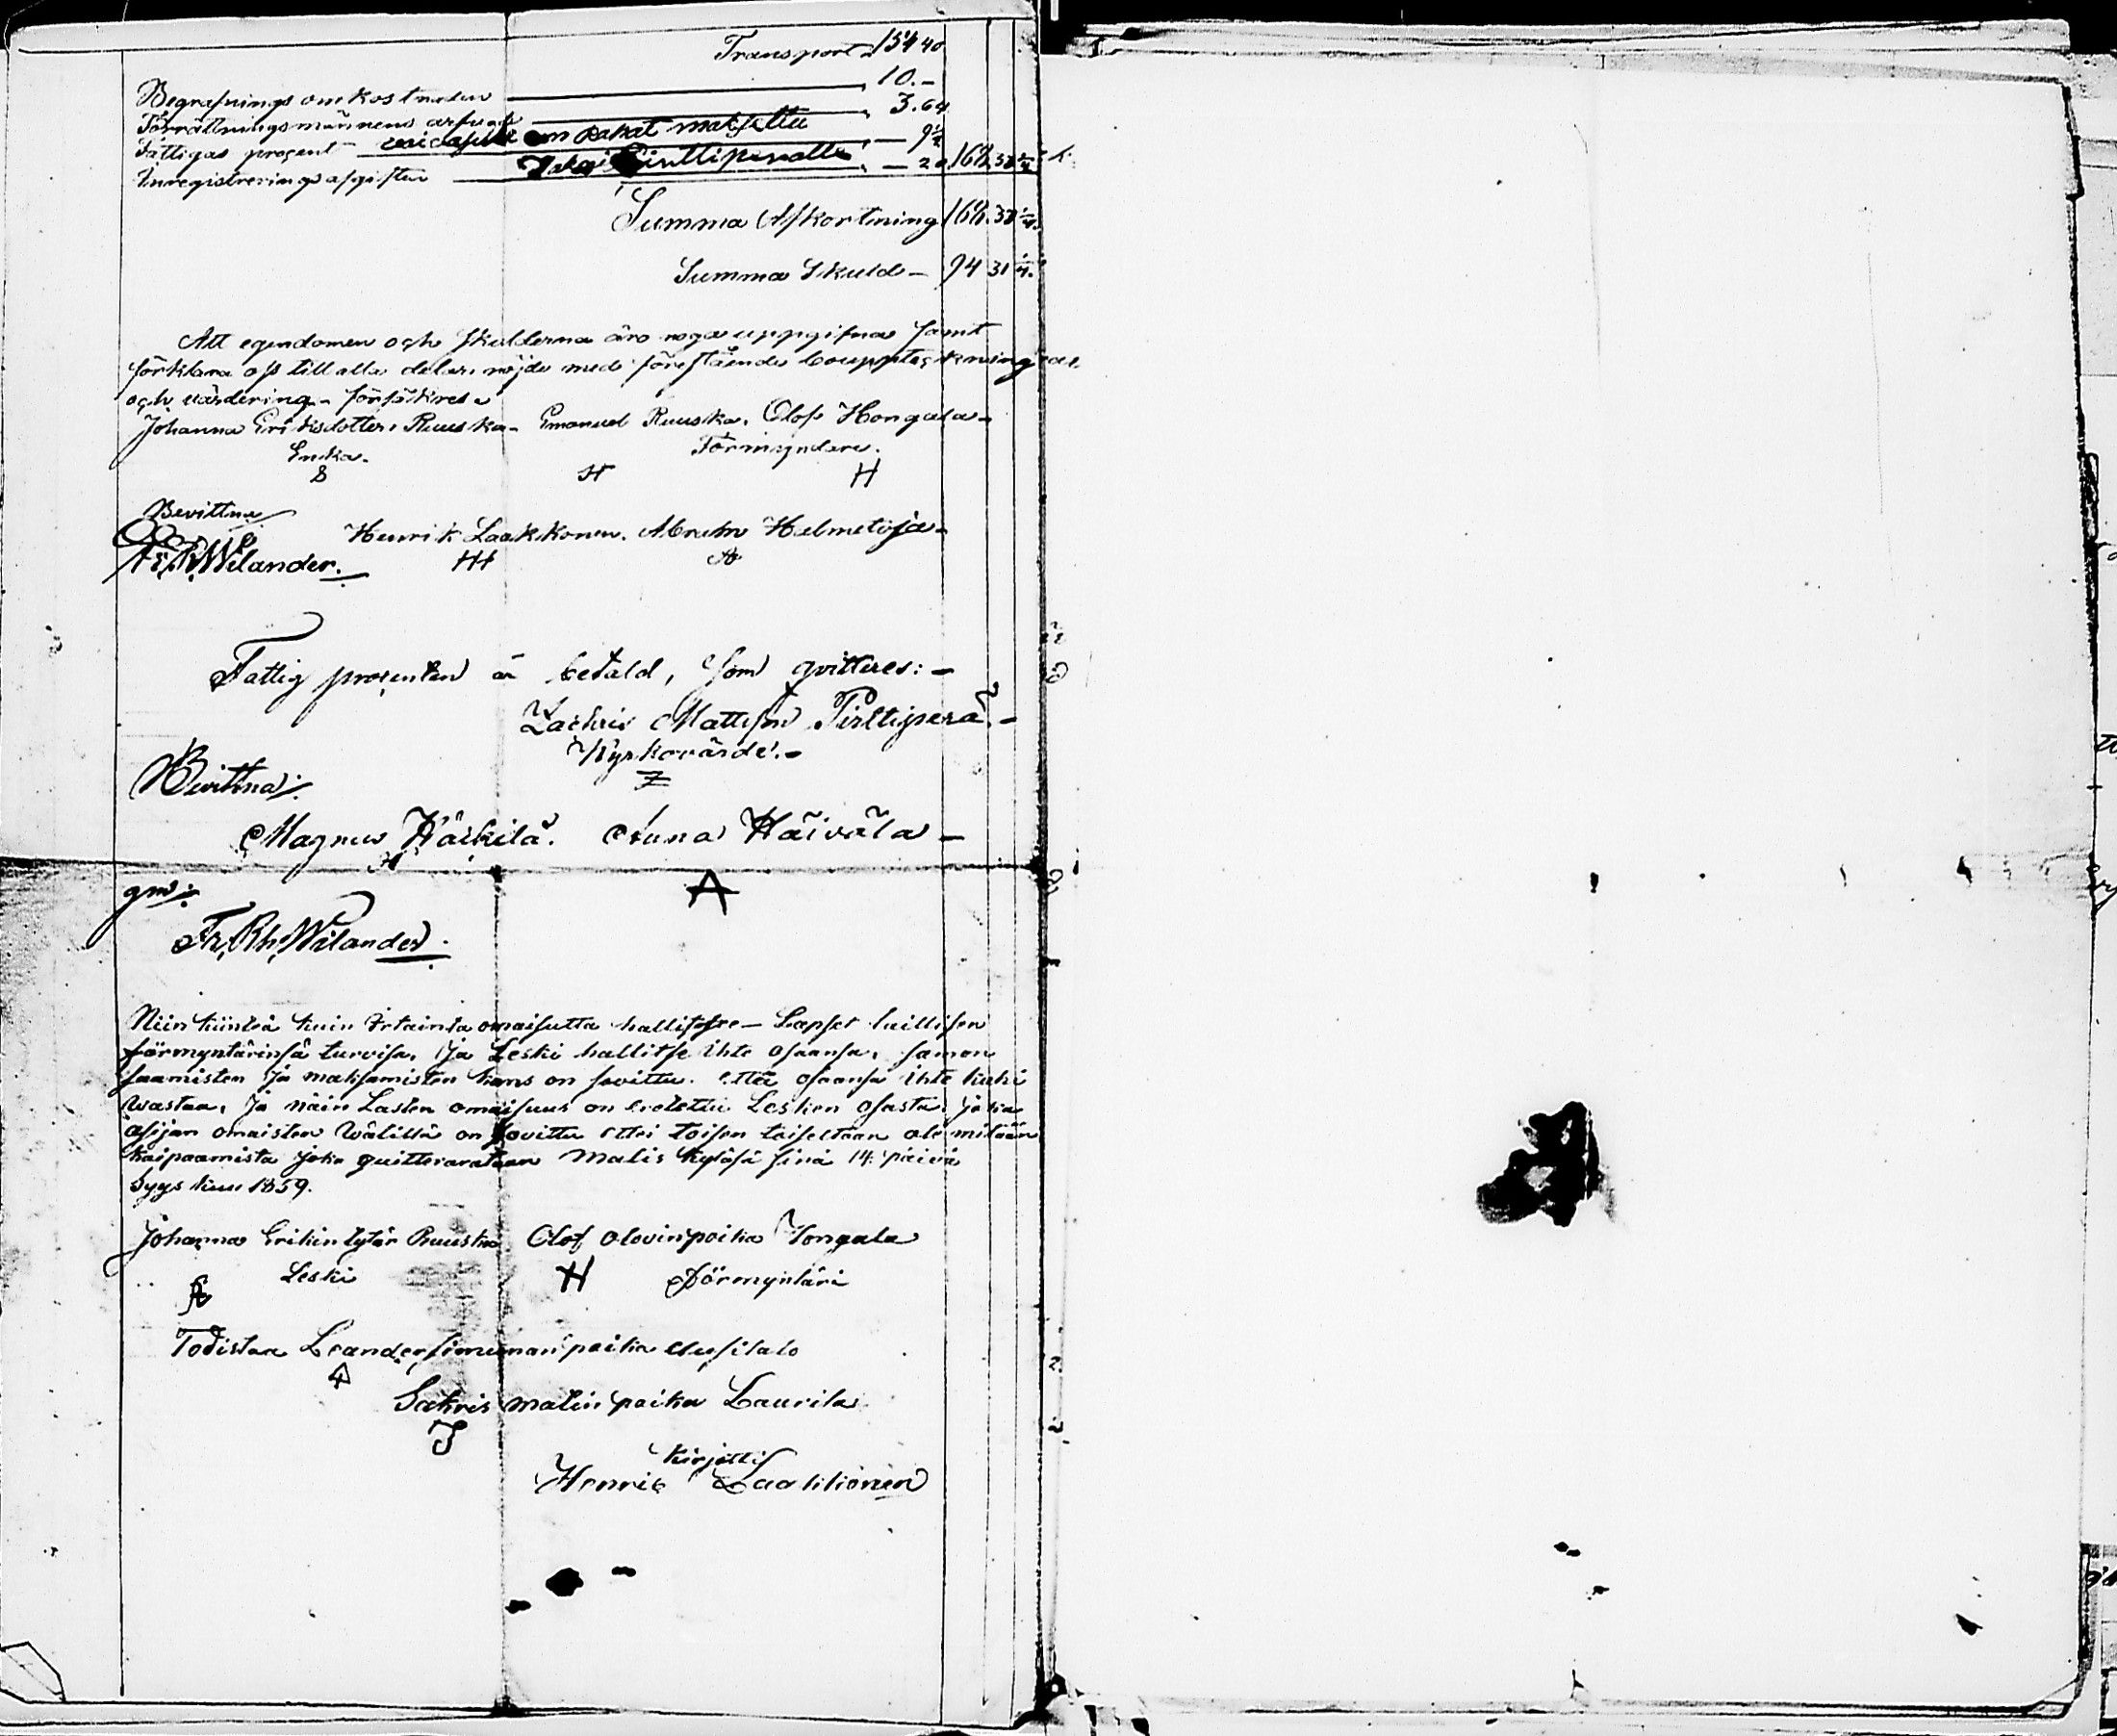 Transport 154 40
Begrafnings omkostnader 10.–
Förrättningsmännens arfvode 3.64
Fattigas procent on rahat maksettu – 9 1/2
Inregistrerings afgifter – 20 168 33 3/4
Summa Afkortning 168. 33 3/4
Summa Skuld – 94 31 1/4
Att egendomen och skulderna äro noga uppgifna samt
förklara oss till alla delar nöjde med förestående bouppteckning
och värdering – försäkres
Johanna Eriksdotter Ruuska – Emanuel Ruuska. Olof Hongala –
Enka. Förmyndare.
H H
Bevittna
Henrik Laakkonen. Abrahm Helmetoja –
Fr. Rh. Wilander. HH
Fattig procenten är betald, som qvitteres: –
Zachris Mattsson Pirttiperä. –
Kyrkovärde. –
Z
Bevittna:
Magnus Häikilä. Anna Häivälä –
A
gm:
Fr. Rh. Wilander.
Niin kiintiä kuin Irtainta omaisutta hallitse – Lapset laillisen
förmyntärinsä turvisa, Ja Leski hallitse ihte osaansa, samon
saamisten Ja maksamisten kans on sovittu. että osaansa ihte kuki
wastaa, Ja näin Lasten omaisuus on erotettu Lesken osasta, joka
asijan omaisten wälillä on sovittu ettei toisen toiseltaan ole mitään
kaipaamista joka quitterarataan Malis kyläsä sinä 14: päivä
Syys kuu 1859.
Johanna Erikin tytär Ruuska Olof olovinpoika Hongala
Leski H Förmyntäri
Todistaa Leander simunan poika Uusitalo
Sakris matin poika Laurila
Kirjotti
Henric Laakkonen